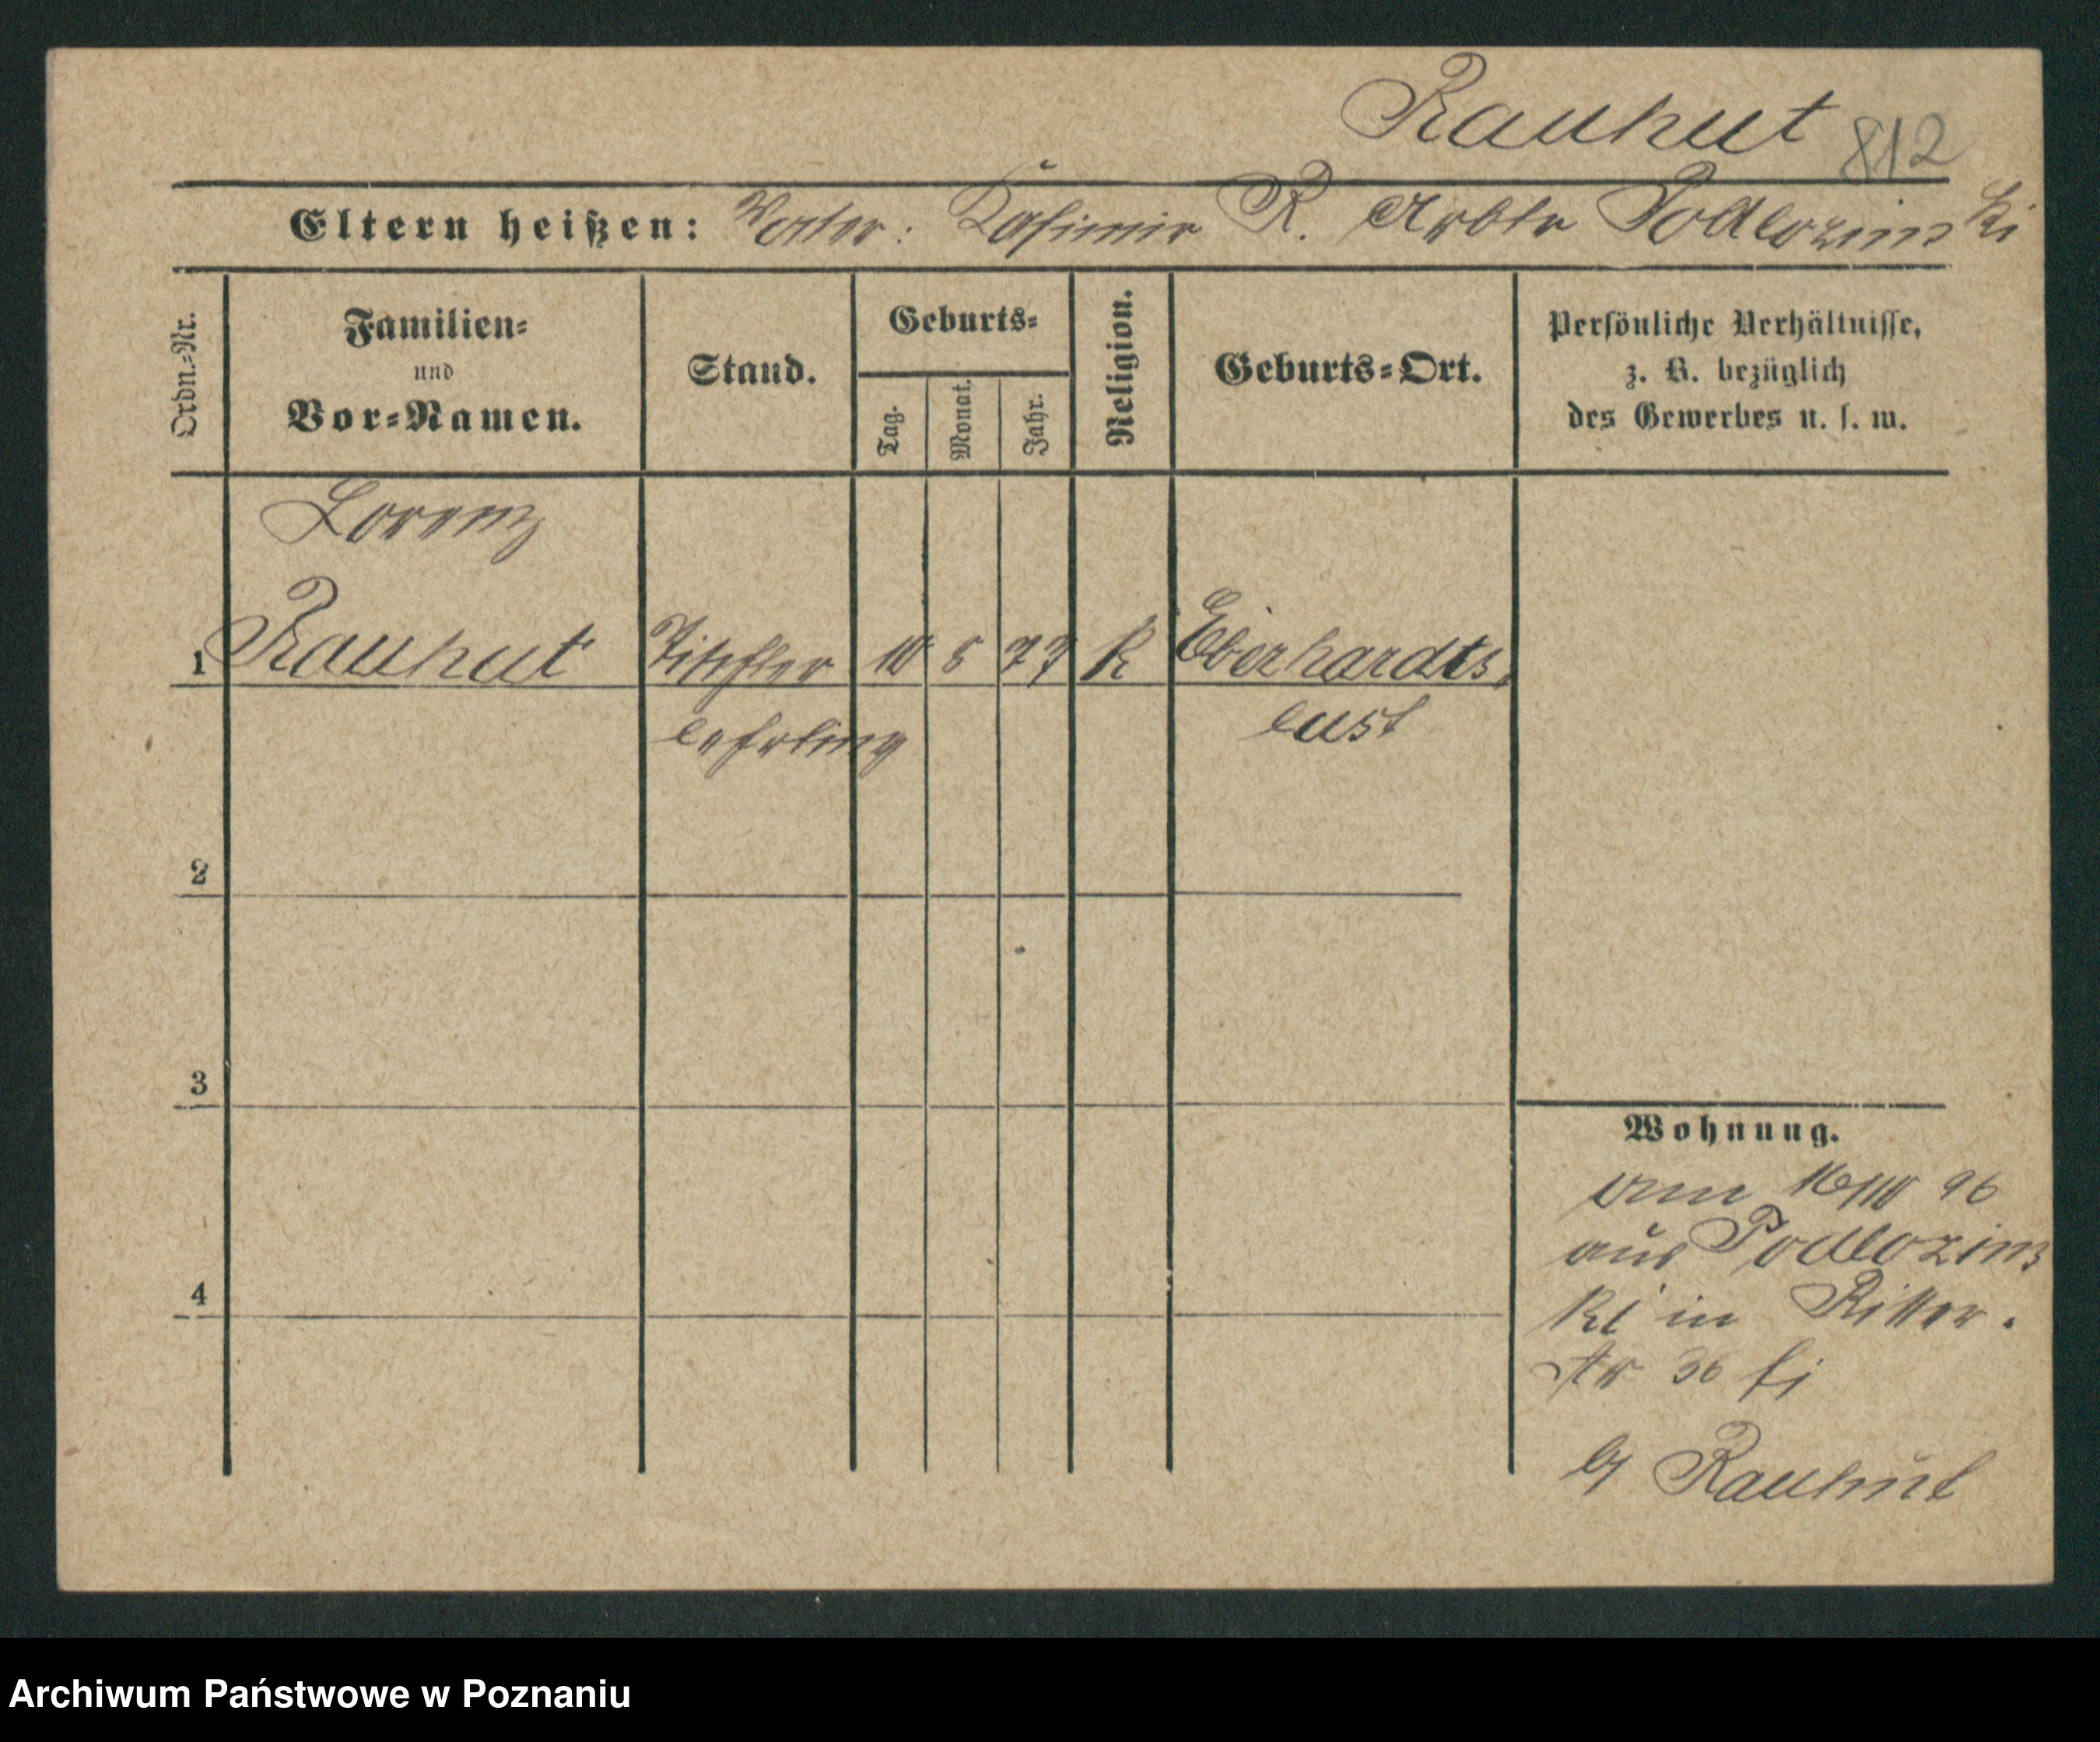 Rauhut 812
Eltern heißen: Vater: Kasimir R. Arbtr Podlozinski
Ordn.-Nr.
Familien-
und
Vor-Namen.
Stand.
Geburts-
Tag.
Monat.
Jahr.
Religion.
Geburts-Ort.
Persönliche Verhältnisse,
z. B. bezüglich
des Gewerbes u. s. w.
Lorenz
1 Rauhut Tischler 10 8 77 K Eberhardts
lehrling lust
2
3
4
Wohnung.
am 96
aus Podlozins
ki in Ritter.
str 36
Rauhut
Archiwum Państwowe w Poznaniu